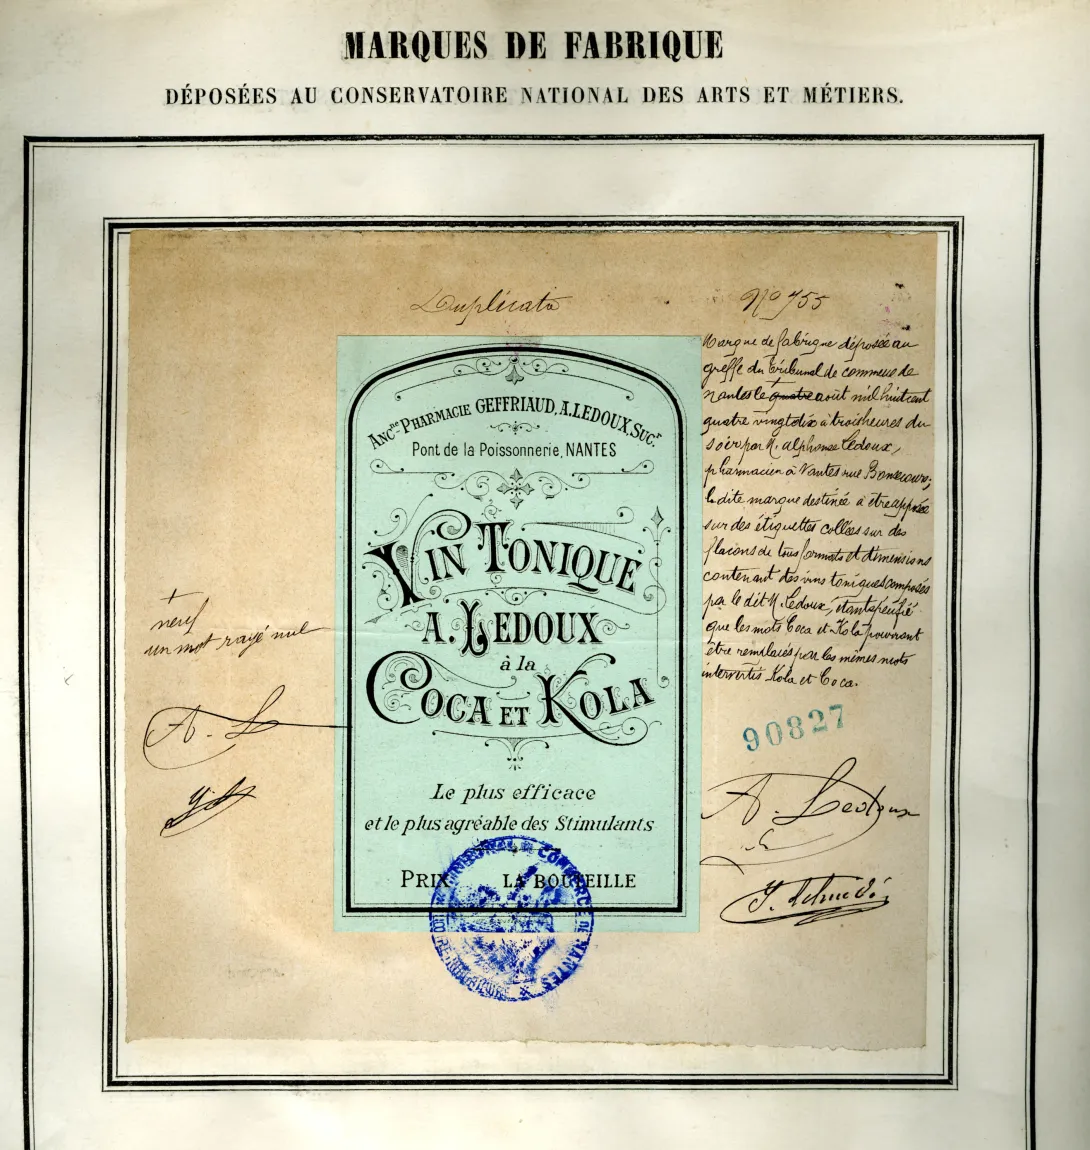 MARQUES DE FABRIQUE
DÉPOSÉES AU CONSERVATOIRE NATIONAL DES ARTS ET MÉTIERS.
Duplicata
No 755
Ancne Pharmacie GEFFRIAUD, A. LEDOUX, Sucr
Pont de la Poissonnerie, NANTES
VIN TONIQUE
A. LEDOUX
à la
COCA ET KOLA
Le plus efficace
et le plus agréable des Stimulants
PRIX LA BOUTEILLE
Marque de fabrique déposée au
greffe du tribunal de commerce de
Nantes le + quatre août mil huit cent
quatre vingt dix à trois heures du
soir par M. alphonse Ledoux,
pharmacien à Nantes rue
ladite marque destinée à être apposée
sur des étiquettes collées sur des
flacons de tous formats et dimensions
contenant des vins toniques composés
par le dit M. Ledoux, étant spécifié
que les mots Coca et Kola pourront
être remplacés par les mêmes mots
intervertis Kola et Coca.
90827
A. Ledoux
+
neuf
un mot rayé nul
A. L
TRIBUNAL DE COMMERCE DE NANTES